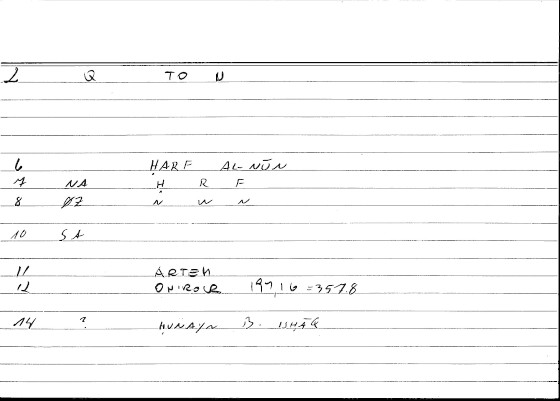 1 Q TO N
6 ḤARF AL-NŪN
7 NA Ḥ R F
8 ØZ N W N
10 SA
11 ARTEM
12 ONIROCR 197,16 = 357.8
14 ? ḤUNAYN B. ISḤĀQ